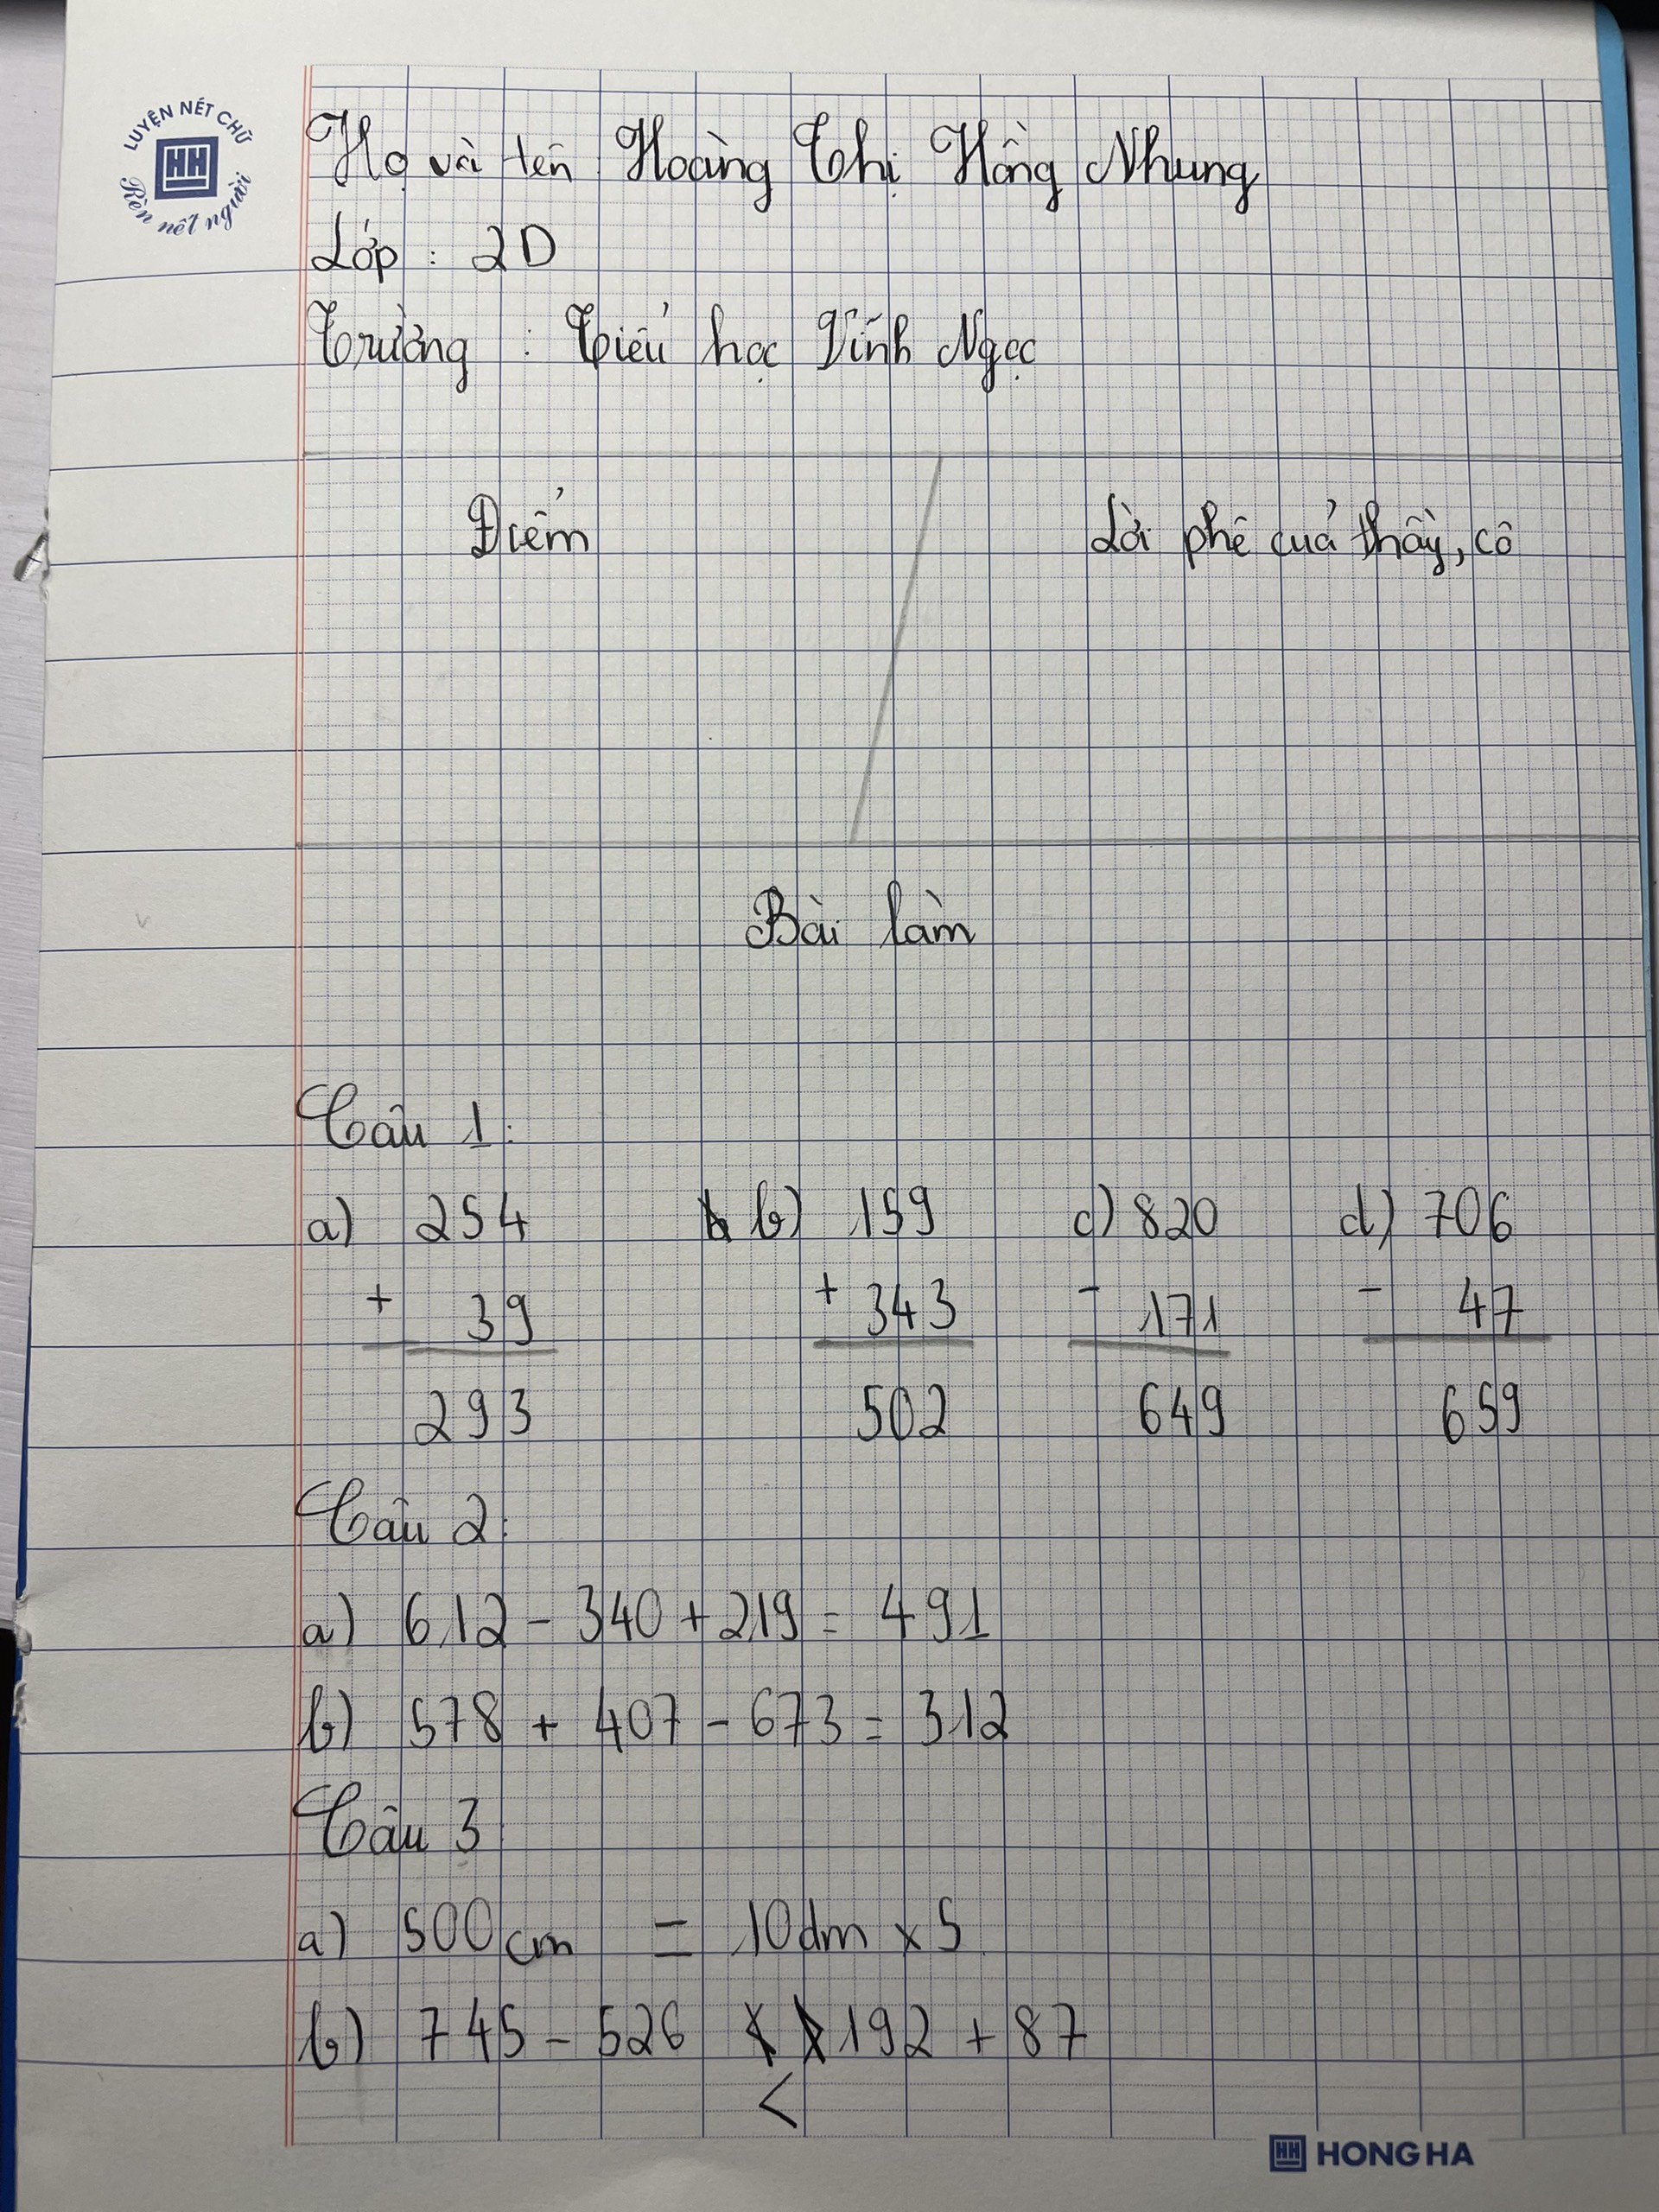 LUYỆN NÉT CHỮ
HH
Rèn nết người
Họ và tên Hoàng Thị Hồng Nhung
Lớp : 2D
Trường : Tiểu học Vĩnh Ngọc
Điểm
Lời phê cuả thầy, cô
Bài làm
Câu 1:
a) 254 b) 159 c) 820 d) 706
+ 39 + 343 - 171 - 47
293 502 649 659
Câu 2:
a) 612 - 340 + 219 = 491
b) 578 + 407 - 673 = 312
Câu 3
a) 500cm = 10dm x 5
b) 745 - 526 192 + 87
<
HH HONG HA